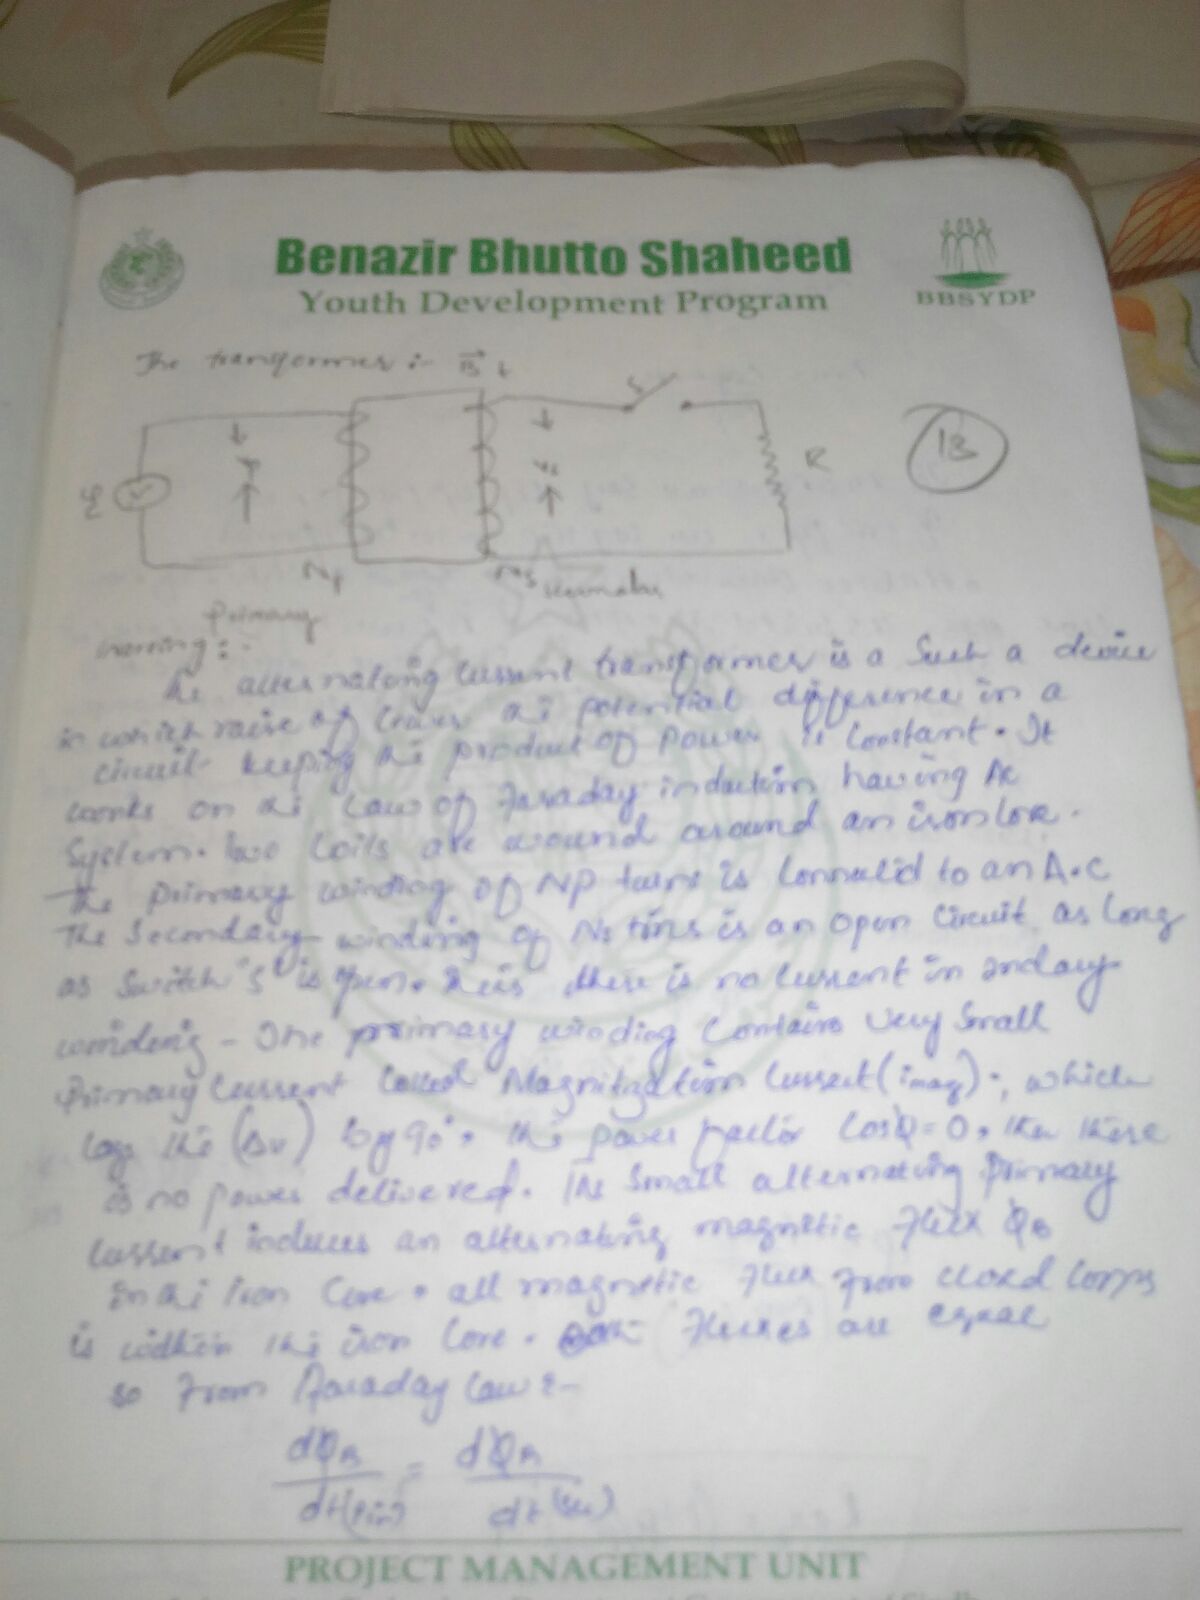 Benazir Bhutto Shaheed
Youth Development Program
BBSYDP
The transformer :- B
13
S
R
E
Np
Ns
Primary
Secondary
Working :-
The alternating Current transformer is a Such a device
in which raise or lower the potential difference in a
circuit keeping the product of Power is Constant. It
works on the Law of Faraday induction having Ac
System. two Coils are wound around an iron Core.
The primary winding of NP turns is Connected to an A.C
The Secondary winding of Ns turns is an open Circuit as long
as Switch "S" is open. there is no Current in 2ndary
winding - The primary winding Contains very Small
Primary Current Called Magnitization Current (imag)., which
Lags the (Δv) by 90°. the power factor Cos φ = 0, then there
is no power delivered. The Small alternating primary
Current induces an alternating magnetic Flux φB
in the iron Core. all magnetic Flux From
is within the iron Core. Both Fluxes are equal
so From Faraday Law :-
dφB = dφB
dt(Pri) dt(Sec)
PROJECT MANAGEMENT UNIT